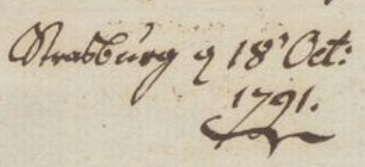 Strasburg 18t Oct:
1791.